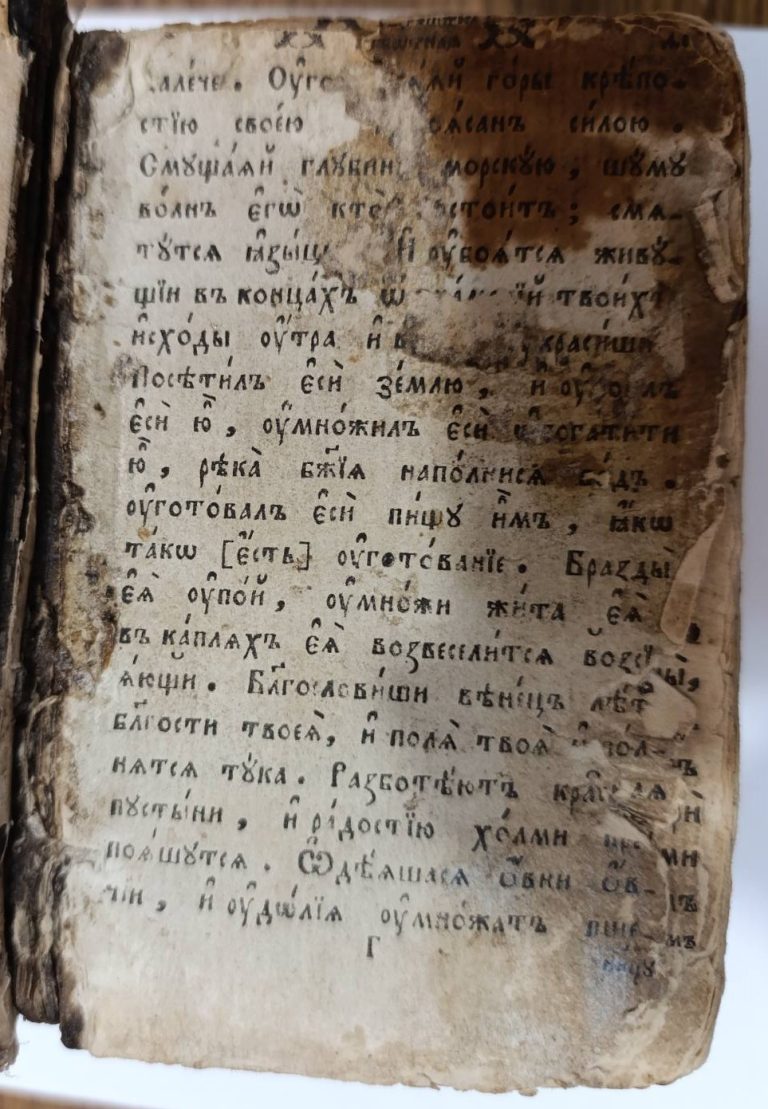 гѡ́ры крѣпо-
стїю своею ѻѧ́санъ си́лою .
Смꙋща́ѧй глꙋбин морскꙋ́ю , шꙋ́мꙋ
во́лнъ є҆гѡ̀ кто̀ стои́тъ ; смѧ-
тꙋ́тсѧ ꙗ҆зы́цы И҆ ᲂу҆боѧ́тсѧ живꙋ́-
щїи въ конца́хъ ѿ твои́хъ
и҆схо́ды ᲂу҆́тра и҆ в ᲂу҆краси́ши
Посѣти́лъ є҆сѝ зе́млю , и҆
є҆сѝ ю҆̀ , ᲂу҆мно́жилъ є҆сѝ ѡ҆богати́ти
ю҆̀ , рѣка̀ бж҃їѧ напо́лнисѧ во́дъ .
ᲂу҆гото́валъ є҆сѝ пи́щꙋ и҆̀мъ , ꙗ҆́кѡ
та́кѡ [є҆́сть] ᲂу҆гото́ванїе . Бразды̀
є҆ѧ̀ ᲂу҆по́й , ᲂу҆мно́жи жи́та є҆ѧ̀
въ ка́плѧхъ є҆ѧ̀ возвесели́тсѧ возсї-
ѧ́ющи . Бл҃гослови́ши вѣне́цъ лѣ́тꙋ
бл҃гости твоеѧ̀ , и҆ полѧ̀ твоѧ̀ и҆спо́л-
нѧтсѧ тꙋ́ка . Разботѣ́ютъ кра́снаѧ
пꙋсты́ни , и҆ ра́достїю хо́лми препо-
поѧ́шꙋтсѧ . Ѡ҆дѣ́ѧшасѧ ѻ҆вни ѻ҆́в-
чїи , и҆ ᲂу҆дѡ́лїѧ ᲂу҆мно́жатъ пше-
Г ницꙋ